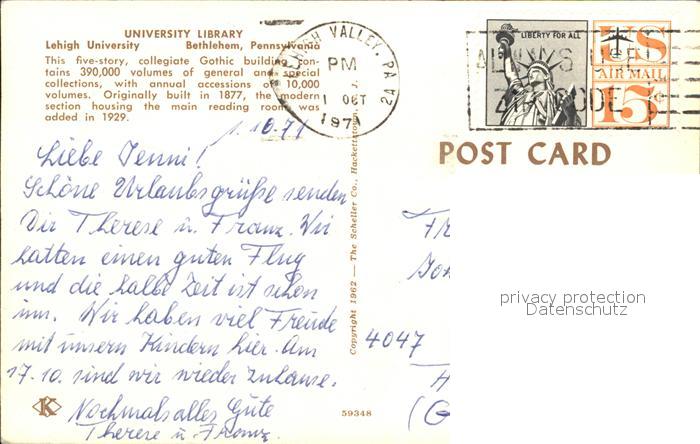 UNIVERSITY LIBRARY
Lehigh University Bethlehem, Pennsylvania
This five-story, collegiate Gothic building con-
tains 390,000 volumes of general and special
collections, with annual accessions of 10,000
volumes. Originally built in 1877, the modern
section housing the main reading room was
added in 1929.
LEHIGH VALLEY, PA
PM
1 OCT
1971
LIBERTY FOR ALL
US
AIR MAIL
15¢
ALWAYS USE
ZIP CODE
POST CARD
1.10.71
Liebe Jenni!
Schöne Urlaubsgrüße senden
Dir Therese u. Franz. Wir
hatten einen guten Flug
und die halbe Zeit ist schon
um. Wir haben viel Freude
mit unsern Kindern hier. Am
17.10. sind wir wieder zuhause.
Nochmals alles Gute
Therese u. Franz.
Copyright 1962 — The Scheller Co., Hackettstown, N. J.
4047
privacy protection
Datenschutz
K
59348